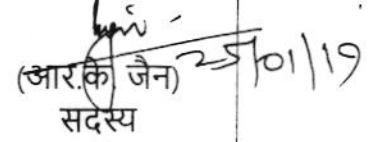 (आर.के. जैन) 25/01/19
सदस्य